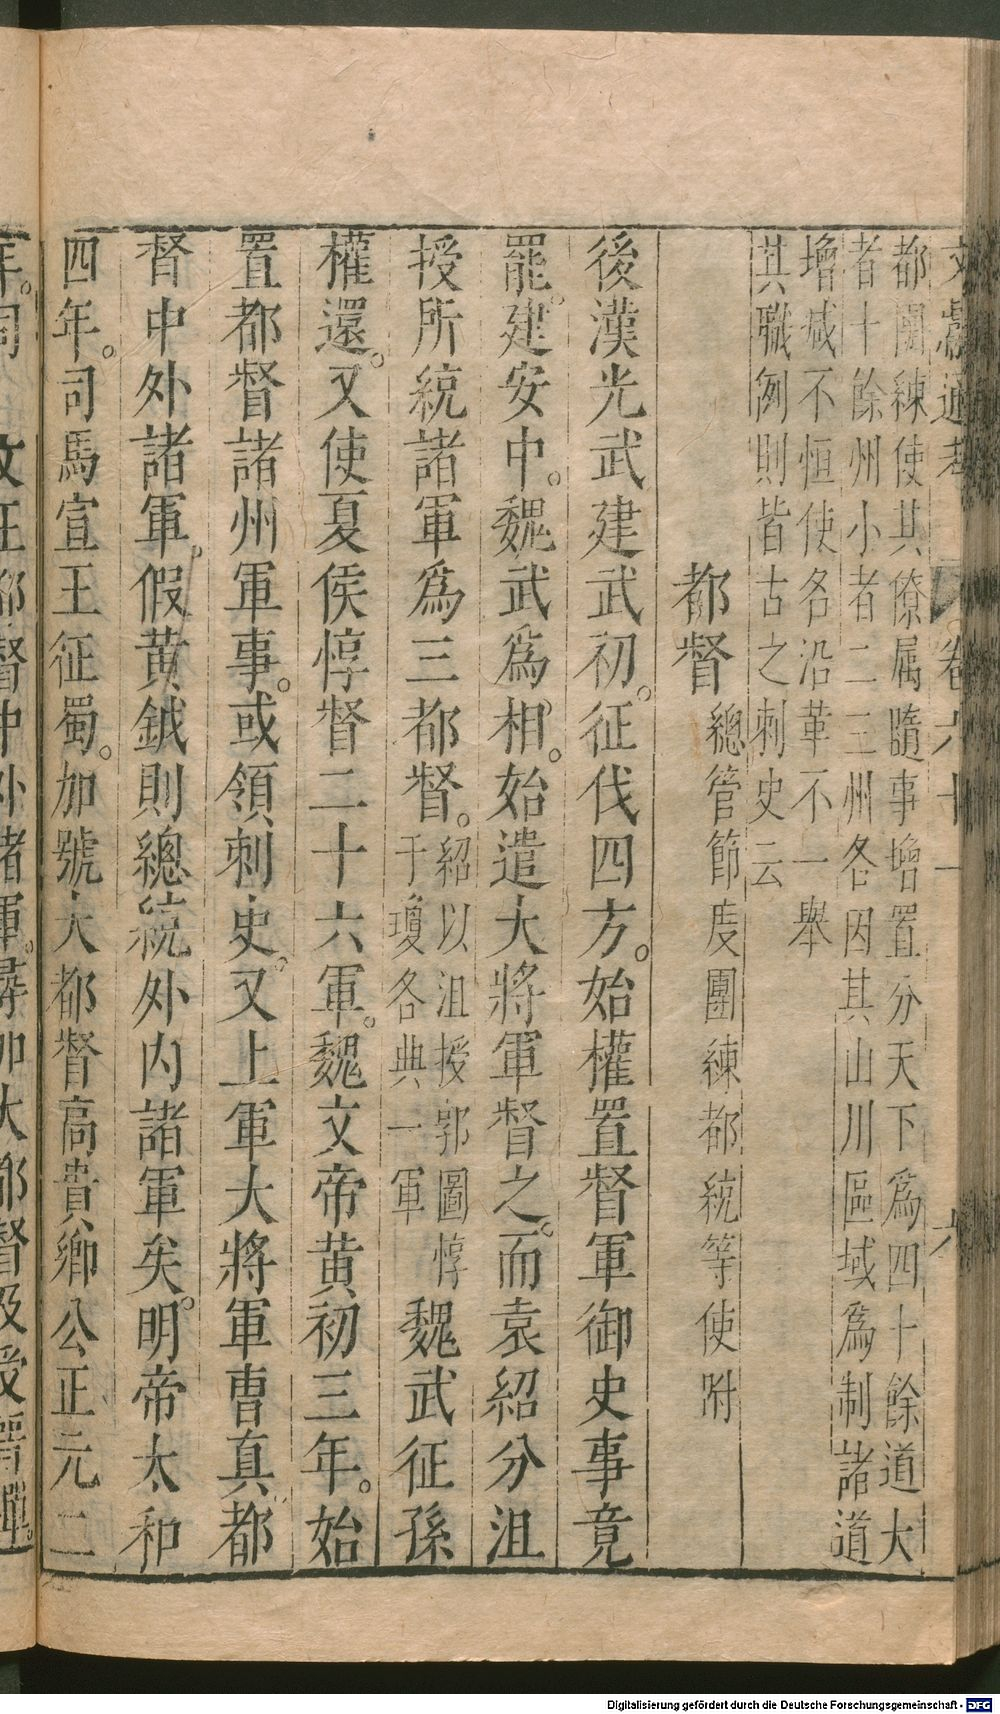 文獻通考 卷六十一 六
都團練使其僚属隨事增置分天下爲四十餘道大
者十餘州小者二三州各因其山川區域爲制諸道
增减不恒使名沿革不一舉
其職例則皆古之刺史云
都督 總管節度團練都統等使附
後漢光武建武初。征伐四方。始權置督軍御史事竟
罷。建安中。魏武爲相。始遣大將軍督之。而袁紹分沮
授所統諸軍爲三都督。
紹以沮授郭圖惇
于瓊各典一軍
魏武征孫
權還。又使夏侯惇督二十六軍。魏文帝黄初三年。始
置都督諸州軍事。或領刺史。又上軍大將軍曹真都
督中外諸軍。假黄鉞則總統外内諸軍矣。明帝太和
四年。司馬宣王征蜀。加號大都督高貴鄉公正元二
年。司 文王都督中外諸軍。尋加大都督及受晋禪。
Digitalisierung gefördert durch die Deutsche Forschungsgemeinschaft - DFG